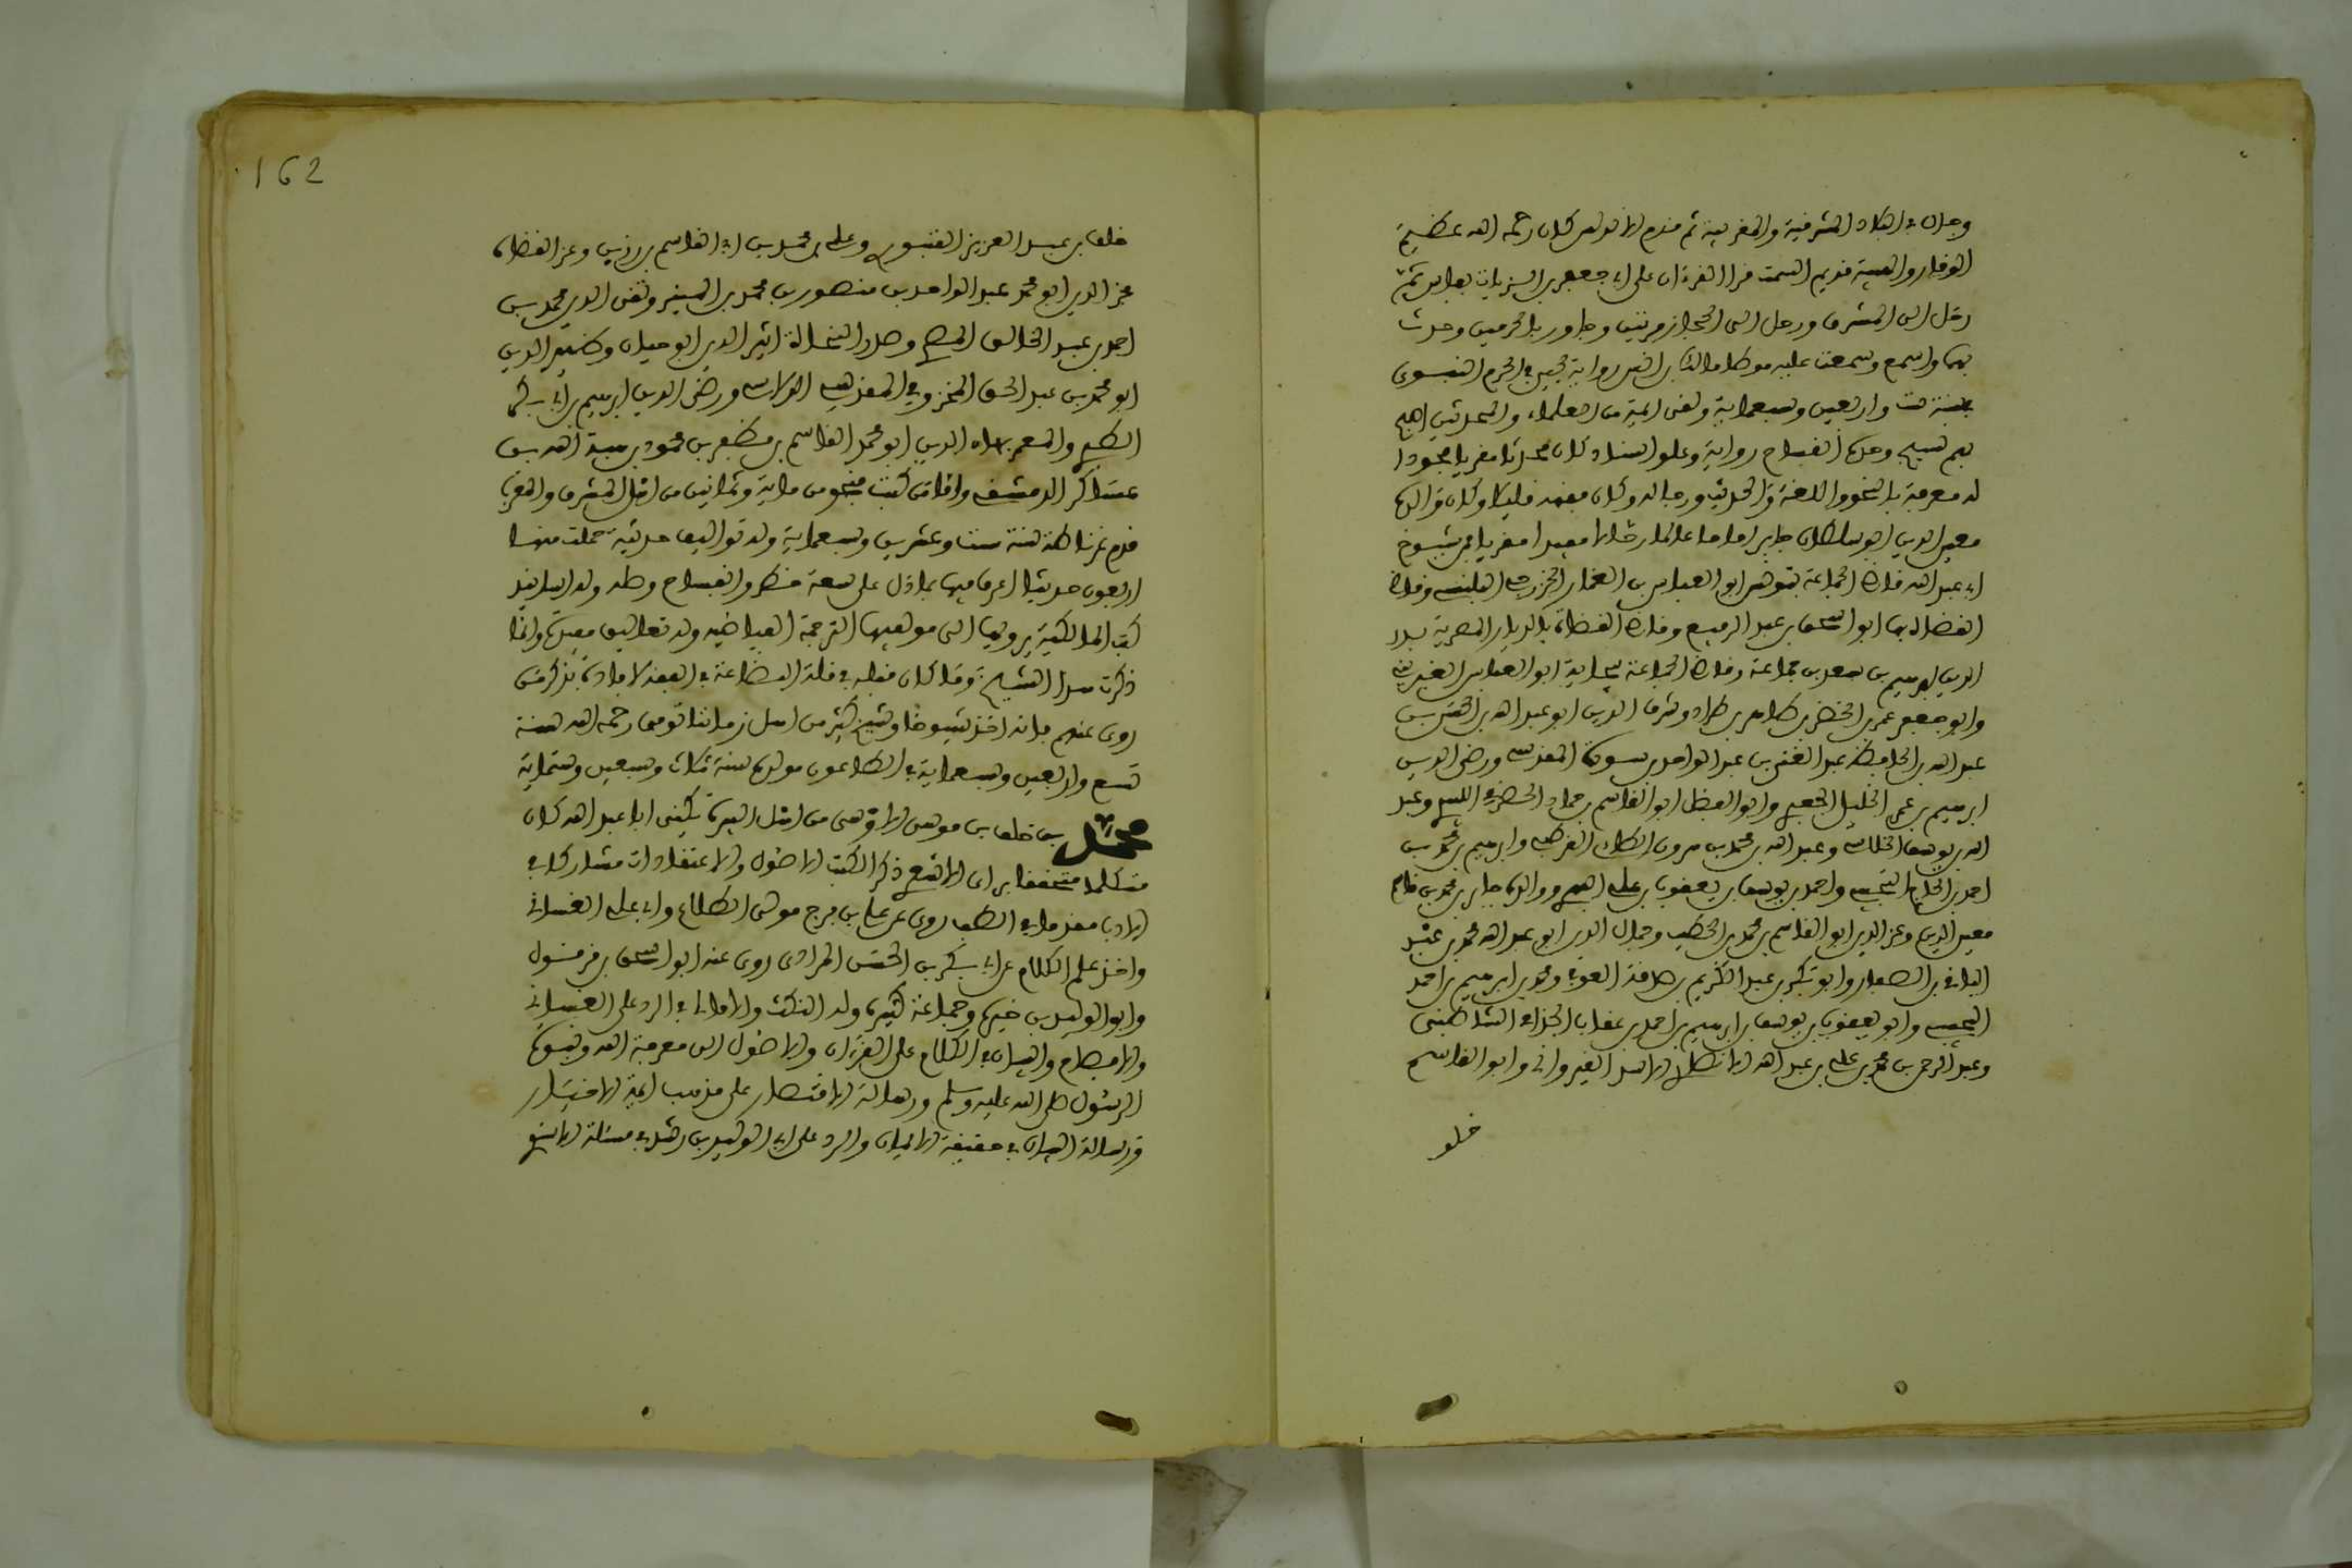 وجال في البلاد المشرقية والمغربية ثم قدم الاندلس كان رحمه الله عظيم
الوقار والهيبة قديم السمت قرا القرءان على ابي جعفر بن الزيات ببلش ثم
رحل الى المشرق ورحل الى الحجاز مرتين وجاور بالحرمين وحدث
بهما واسمع وسمعت عليه موطا مالك بن انس رواية يحيى
سنة ست واربعين وسبعماية ولقي ايمة من العلماء والمحدثين
نسيج وحده انفساح رواية وعلو اسناد كان محدثا مقريا مجودا
له معرفة بالنحو واللغة والحديث ورجاله وكان بفقه قليلا وكان والده
معين الدين ابو سلطان جابر اماما عالما رحالا معيدا مقريا فمن شيوخ
ابي عبد الله قاضي الجماعة بتونس ابو العباس بن الغماز الخزرجي البلنسي وقاضي
القضاة بها ابو اسحق بن عبد الرفيع وقاضي القضاة بالديار المصرية بدر
الدين ابرهيم بن سعد بن جماعة وقاضي الجماعة ببجاية ابو العباس الغبريني
وابو جعفر عمر بن الخضر بن طاهر بن طراد وشرف الدين ابو عبد الله بن الحسن بن
عبد الله بن الحافظ عبد الغني بن عبد الواحد بن سرور المقدسي ورضي الدين
ابرهيم بن عمر الخليل الجعبري وابو الفضل ابو القاسم بن حماد الحضرمي اللبيدي وعبد
الله بن يوسف الخلاسي وعبد الله بن محمد بن هرون الطائي القرطبي وابرهيم بن محمد بن
احمد بن الحاج التجيبي واحمد بن يوسف بن يعقوب بن علي الفهري ووالده جابر بن محمد بن قاسم
معين الدين وعز الدين ابو القاسم بن محمد بن الخطيب وجمال الدين ابو عبد الله محمد بن عبد
الباقي بن الصفار وابو بكر بن عبد الكريم بن صدقة العوفي ومحمد بن ابرهيم بن احمد
التجيبي وابو يعقوب بن يوسف بن ابرهيم بن احمد بن عقاب الجذامي الشاطبي
وعبد الرحمن بن محمد بن علي بن عبد الله الانصاري الاسدي القيرواني وابو القاسم
خلف
162
خلف بن عبد العزيز القبتوري وعلي بن محمد بن ابي القاسم بن رزين وعز القضاة
عز الدين ابو محمد عبد الواحد بن منصور بن محمد بن المنير وتقي الدين محمد بن
احمد بن عبد الخالق المصري وصدر النحاة اثير الدين ابو حيان وظهير الدين
ابو محمد بن عبد الحق المخزومي المقدسي الدلاصي ورضي الدين ابرهيم بن ابي بكر
الطبري والمعمر بهاء الدين ابو محمد القاسم بن مظفر بن محمود بن هبة الله بن
عساكر الدمشقي واما من كتب فنحو من ماية وثمانين من اهل المشرق والمغرب
قدم غرناطة سنة ست وعشرين وسبعماية وله تواليف حديثية جملة منها
اربعون حديثا اغرب فيها بما دل على سعة خطو وانفساح رحلة وله اسانيد
كتب المالكية يرويها الى مولفيها الترجمة العياضية وله تعاليق مفيدة وانما
ذكرت هذا الشيخ وما كان مقله في قلة البضاعة في الفقه لافادة بذكر من
روى عنهم فانه اخذ شيوخنا وشيخ كثير من اهل زماننا توفي رحمه الله سنة
تسع واربعين وسبعماية في الطاعون مولده سنة ثلاث وسبعين وستماية
محمد بن خلف بن موسى الاوسي من اهل البيرة يكنى ابا عبد الله كان
متكلما متحققا براي الاشعري ذكر الكتب الاصول والاعتقادات مشاركا في
الادب مقدما في الطب روى عن علي بن فرج مولى الطلاع وابي علي الغساني
واخذ علم الكلام عن ابي بكر بن الحسن المرادي روى عنه ابو اسحق بن قرقول
وابو الوليد بن خيرة وجماعة كثيرة وله النكت والامالي في الرد على الغزالي
والافصاح والبيان في الكلام على القرءان والاصول الى معرفة الله ونبوة
الرسول صلى الله عليه وسلم ورسالة الاقتصار على مذهب ايمة الاختيار
ورسالة البيان في حقيقة الايمان والرد على ابي الوليد بن رشد في مسئلة الاستوا